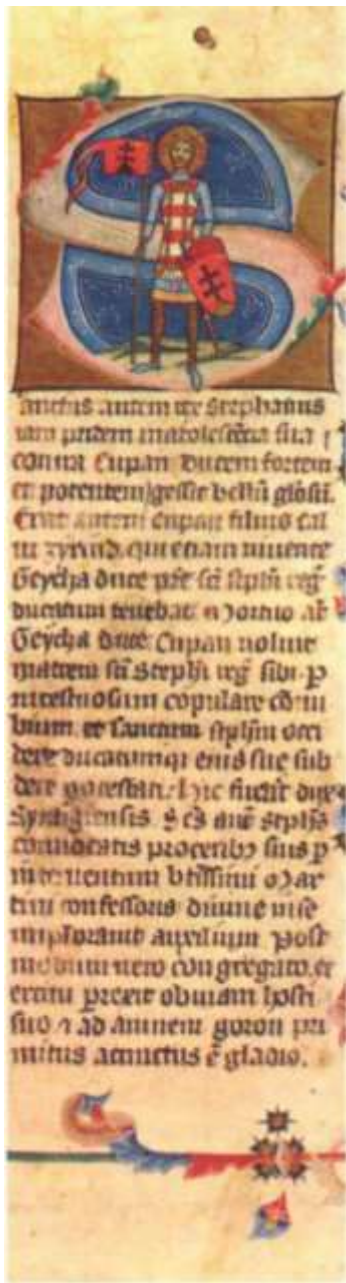 Sanctus autem rex Stephanus
iam pridem in adolescẽcia sua
contra Cupan ducem fortem
et potentem gessit bellũ gl̃osũ.
Erat autem cupan filius cal
ui zyrind, qui etiam uiuente
Geycha duce pr̃e sc̃i steph̃i reg̃
ducatum tenebat. Mortuo aũt
Geycha duce Cupan uoluit
matrem sc̃i Steph̃i reg̃ sibi ꝑ
incestuosum copulare cõnu
bium et sanctum steph̃m occi
dere ducatumqꝫ eius sue sub
dere potestati. hic fuerat dux
Symigiensis. Sc̃s aut̃ steph̃s
conuocatis proceribꝫ suis ꝑ
interuentum btissimi Mar
tini confessoris diuine mi̅e
implorauit auxilium. Post
modum uero congregato ex
ercitu perrexit obuiam hosti
suo ⁊ ad amnem goron pri
mitus accinctus ẽ gladio.